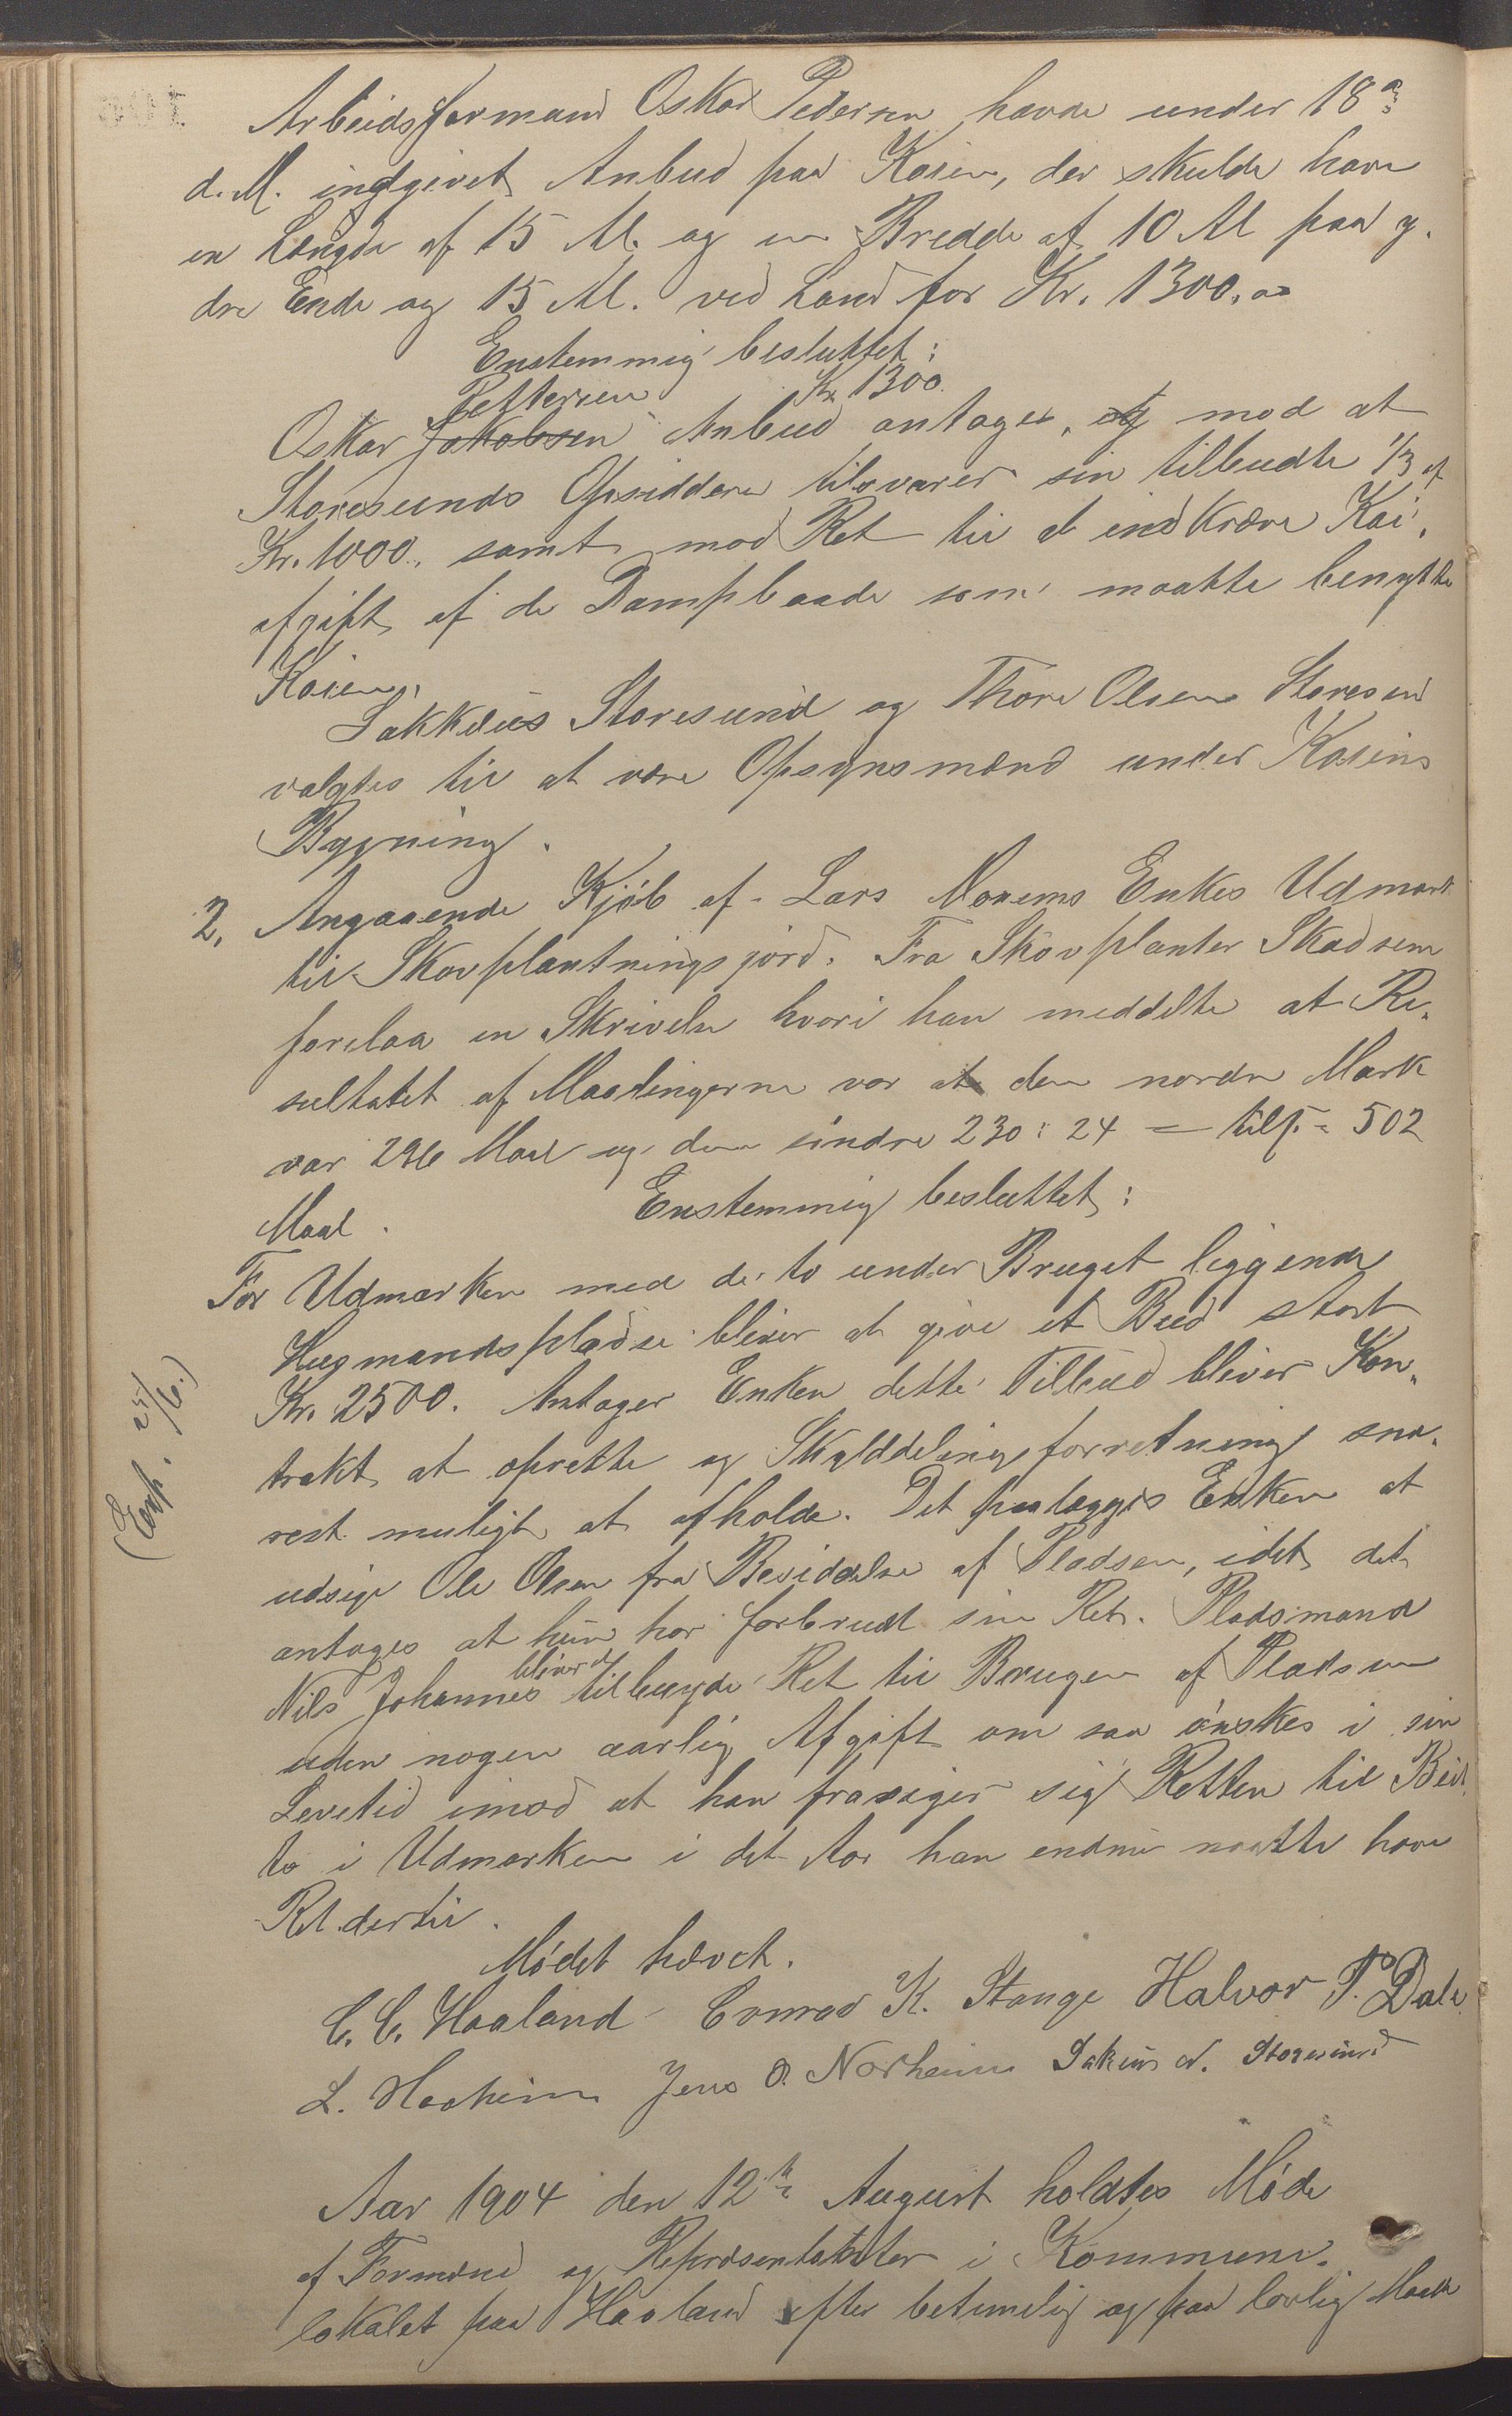 Arbeidsformand Oskar Pedersen havde under 18de
d. M. indgivet Anbud paa Kaien, der skulde have
en Længde af 15 M. og en Bredde af 10 M paa y-
dre Ende og 15 M. ved Land for Kr. 1300,00
Enstemmig besluttet:
Pettersen Kr. 1300
Oskar Jakobsen Anbud antages, og mod at
Storesunds Opsiddere tilsvarer sin tilbudte 1/3 af
Kr. 1000, samt mod Ret til at indkræve Kai-
afgift af de Dampbaade som maatte benytte
Kaien.
Sakkæus Storesund og Thore Olsen Storesund
valgtes til at være Opsynsmænd under Kaiens
Bygning.
2. Angaaende Kjøb af Lars Norems Enkes Udmark
til Skovplantningsjord. Fra Skovplanter Skadsem
forelaa en Skrivelse hvori han meddelte at Re-
sultatet af Maalingerne var at den nordre Mark
var 296 Maal og den søndre 230 : 24 = tils. = 502
Maal.
Enstemmig besluttet:
For Udmarken med de to under Bruget liggende
Husmandspladse bliver at give et Bud stort
Kr. 2500. Antager Enken dette Tilbud bliver Kon-
trakt at oprette og Skylddelingsforretning sna-
rest muligt at afholde. Det paalægges Enken at
udsige Ole Olsen fra Besiddelse af Pladsen, idet det
antages at hun har forbrudt sin Ret. Pladsmand
bliver at
Nils Johannes tilbyde Ret til Brugen af Pladsen
uden nogen aarlig Afgift om saa ønskes i sin
Levetid imod at han frasiger sig Retten til Beit
to i Udmarken i det Aar han endnu maatte have
Ret dertil.
(Exp. 25/6.)
Mødet hævet.
C. C. Haaland Conrad K. Stange Halvor T. Dale
L. Haaheim Jens O. Norheim Sakeus N. Storesund
Aar 1904 den 12te August holdtes Møde
af Formænd og Repræsentanter i Kommune-
lokalet paa Haaland efter betimelig og paa lovlig Maade